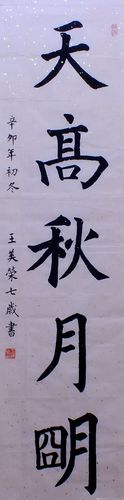 天髙秋月朙
辛卯年初冬
王美榮七歲書